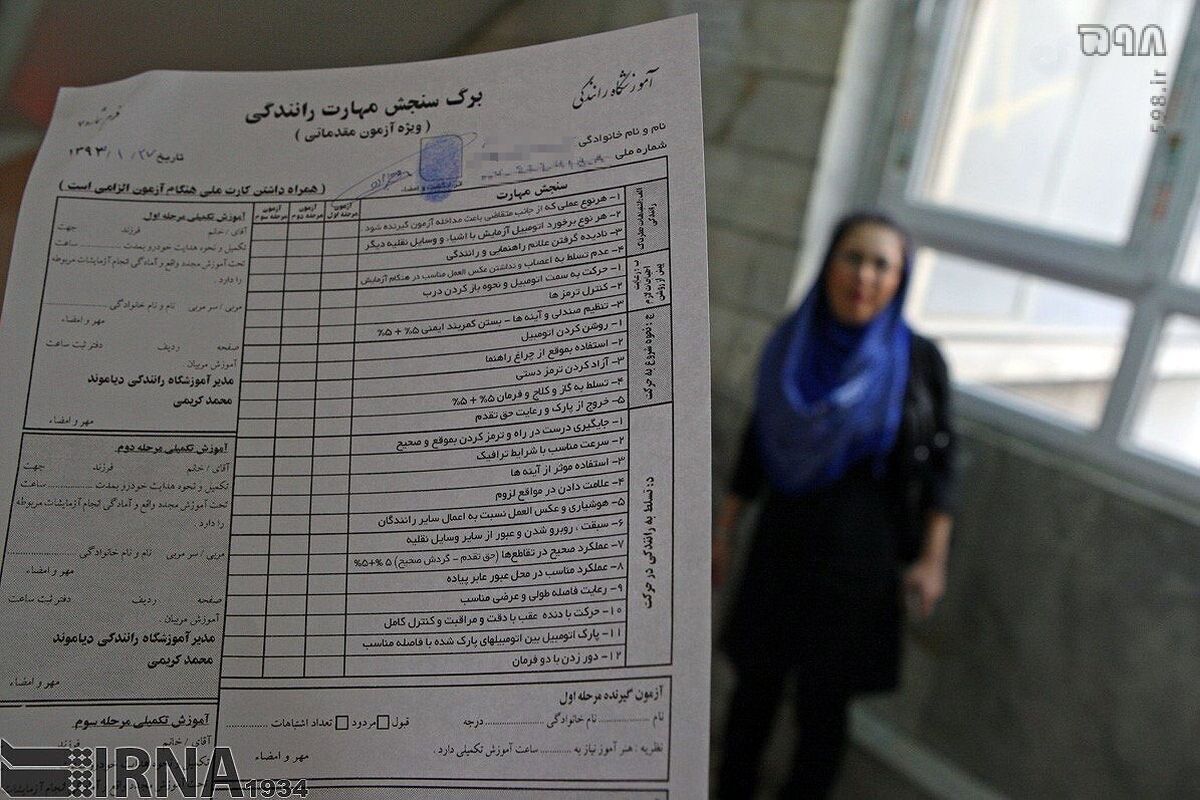 ۵۹۸
598.ir
آموزشگاه رانندگی
برگ سنجش مهارت رانندگی
( ویژه آزمون مقدماتی )
تاریخ ۱۳۹۳/۱/۲۷
نام و نام خانوادگی
شماره ملی
( همراه داشتن کارت ملی هنگام آزمون الزامی است )
سنجش مهارت
آزمون مرحله اول
آزمون مرحله دوم
آزمون مرحله سوم
۱- هرنوع عملی که از جانب متقاضی باعث مداخله آزمون گیرنده شود
۲- هر نوع برخورد اتومبیل آزمایش با اشیاء و وسایل نقلیه دیگر
۳- نادیده گرفتن علائم راهنمایی و رانندگی
۴- عدم تسلط به اعصاب و نداشتن عکس العمل مناسب در هنگام آزمایش
۱- حرکت به سمت اتومبیل و نحوه باز کردن درب
۲- کنترل ترمز ها
۳- تنظیم صندلی و آینه ها - بستن کمربند ایمنی ۵% + ۵%
ج : نحوه شروع به حرکت
۱- روشن کردن اتومبیل
۲- استفاده بموقع از چراغ راهنما
۳- آزاد کردن ترمز دستی
۴- تسلط به گاز و کلاج و فرمان ۵% + ۵%
۵- خروج از پارک و رعایت حق تقدم
د: تسلط به رانندگی در حرکت
۱- جایگیری درست در راه و ترمز کردن بموقع و صحیح
۲- سرعت مناسب با شرایط ترافیک
۳- استفاده موثر از آینه ها
۴- علامت دادن در مواقع لزوم
۵- هوشیاری و عکس العمل نسبت به اعمال سایر رانندگان
۶- سبقت ، روبرو شدن و عبور از سایر وسایل نقلیه
۷- عملکرد صحیح در تقاطع‌ها (حق تقدم - گردش صحیح) ۵%+۵%
۸- عملکرد مناسب در محل عبور عابر پیاده
۹- رعایت فاصله طولی و عرضی مناسب
۱۰- حرکت با دنده عقب با دقت و مراقبت و کنترل کامل
۱۱- پارک اتومبیل بین اتومبیلهای پارک شده با فاصله مناسب
۱۲- دور زدن با دو فرمان
آزمون گیرنده مرحله اول
نام ............ نام خانوادگی ............ درجه
قبول مردود تعداد اشتباهات ............
نظریه : هنر آموز نیاز به ............ ساعت آموزش تکمیلی دارد .
مهر و امضاء
آموزش تکمیلی مرحله اول
آقای / خانم فرزند جهت
تکمیل و نحوه هدایت خودرو بمدت ............ ساعت
تحت آموزش مجدد واقع و آمادگی انجام آزمایشات مربوطه
را دارد .
مربی / سر مربی نام و نام خانوادگی ............
مهر و امضاء
صفحه ردیف دفتر ثبت ساعت
آموزش مربیان .
مدیر آموزشگاه رانندگی دیاموند
محمد کریمی
مهر و امضاء
آموزش تکمیلی مرحله دوم
آقای / خانم فرزند جهت
تکمیل و نحوه هدایت خودرو بمدت ............ ساعت
تحت آموزش مجدد واقع و آمادگی انجام آزمایشات مربوطه
را دارد .
مربی / سر مربی نام و نام خانوادگی ............
مهر و امضاء
صفحه ردیف دفتر ثبت ساعت
آموزش مربیان .
مدیر آموزشگاه رانندگی دیاموند
محمد کریمی
مهر و امضاء
آموزش تکمیلی مرحله سوم
آقای / خانم فرزند
IRNA 1934